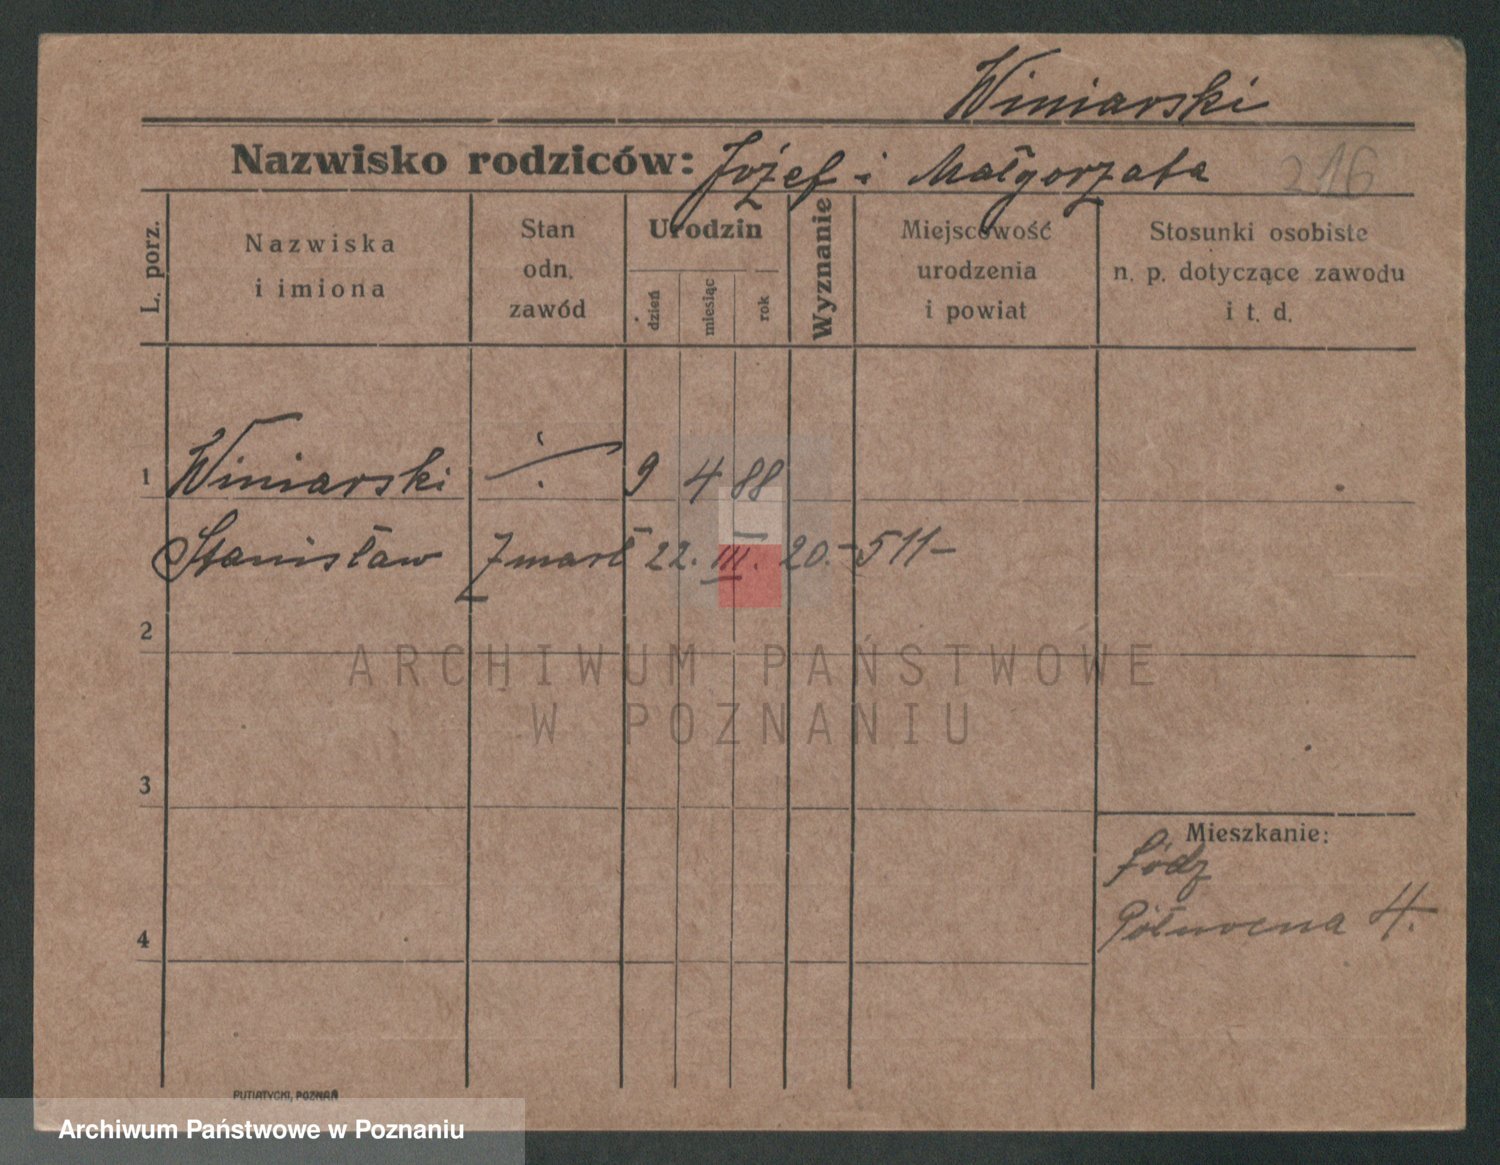 Winiarski
Nazwisko rodziców: Józef i Małgorzata 216
L. porz.
Nazwiska
i imiona
Stan
odn.
zawód
Urodzin
dzień
miesiąc
rok
Wyznanie
Miejscowość
urodzenia
i powiat
Stosunki osobiste
n. p. dotyczące zawodu
i t. d.
1 Winiarski 9 4 88
Stanisław Zmarł 22. III. 20. - 511 -
2
ARCHIWUM PAŃSTWOWE
W POZNANIU
3
Mieszkanie:
Łódz
Północna 4.
4
PUTIATYCKI, POZNAŃ
Archiwum Państwowe w Poznaniu